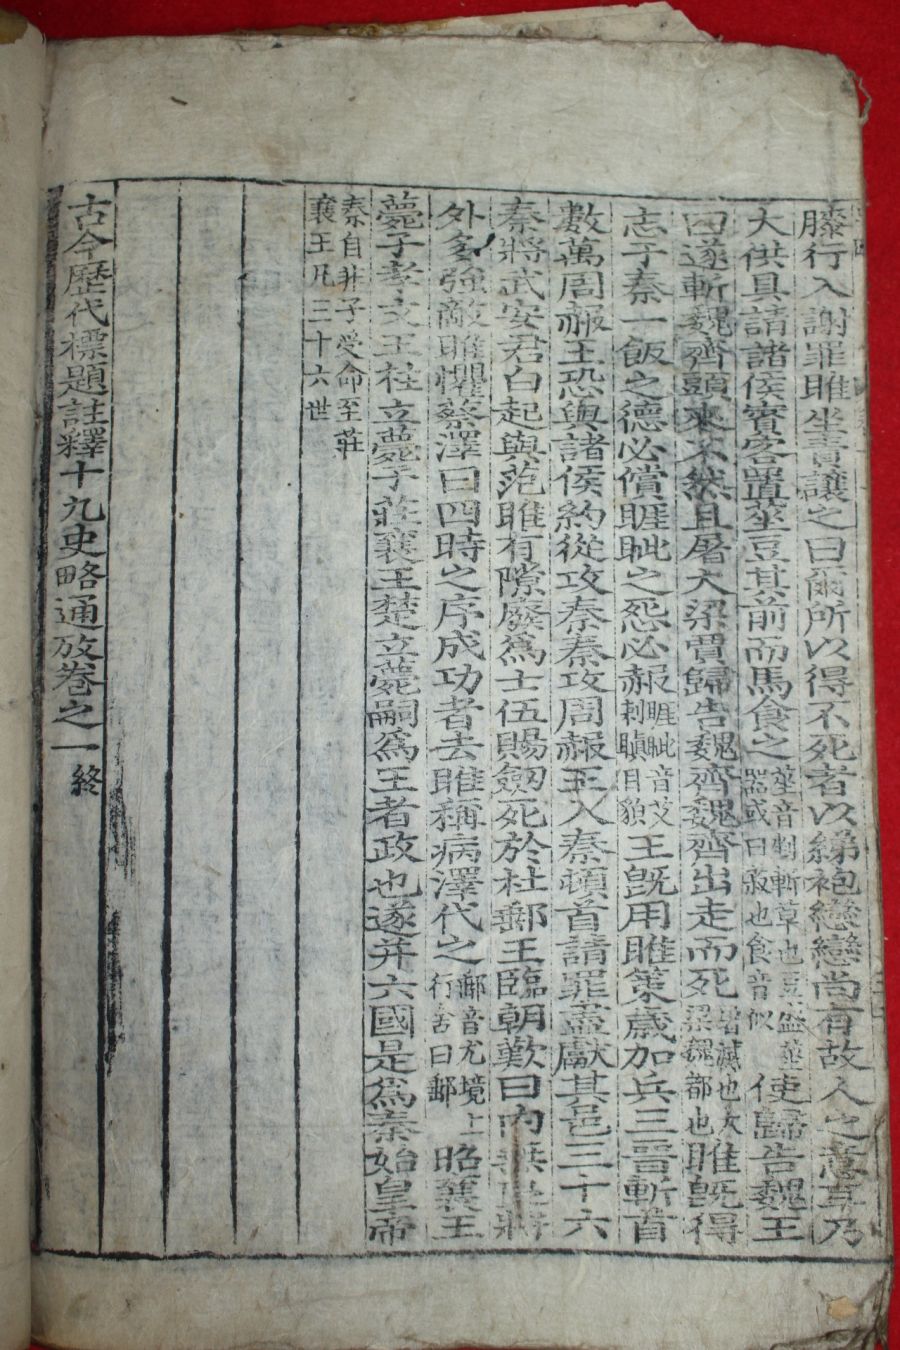 膝行入謝罪睢坐責讓之曰爾所以得不死者以綈袍戀戀尚有故人之意耳乃
大供具請諸侯賓客置莝豆其前而馬食之莝音剉斬草也豆盛莝器或曰菽也食音似使歸告魏王
曰遂斬魏齊頭來不然且屠大梁賈歸告魏齊魏齊出走而死滅也大梁魏都也睢旣得
志于秦一飯之德必償睚眦之怨必報睚眦音艾刺瞋目貌王旣用睢策歲加兵三晉斬首
數萬周赧王恐與諸侯約從攻秦秦攻周赧王入秦頓首請罪盡獻其邑三十六
秦將武安君白起與范睢有隙廢爲士伍賜劒死於杜郵王臨朝歎曰內無良將
外多強敵睢懼蔡澤曰四時之序成功者去睢稱病澤代之郵音尤境上行舍曰郵昭襄王
薨子孝文王柱立薨子莊襄王楚立薨嗣爲王者政也遂并六國是爲秦始皇帝
秦自非子受命至莊
襄王凡三十六世
古今歷代標題註釋十九史略通攷卷之一終